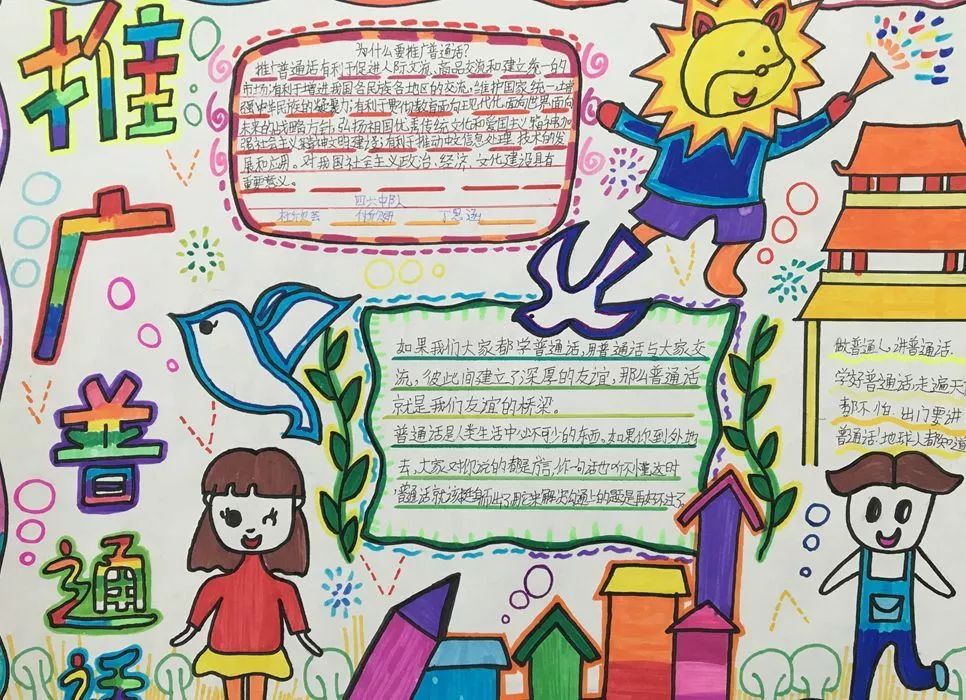 推
广
普
通
话
为什么要推广普通话?
推广普通话有利于促进人际交流,商品交流和建立统一的
市场,有利于增进我国各民族各地区的交流,维护国家统一,增
强中华民族的凝聚力,有利于贯彻教育面向现代化,面向世界,面向
未来的战略方针,弘扬祖国优秀传统文化和爱国主义精神,加
强社会主义精神文明建设,有利于推动中文信息处理技术的发
展和应用。对我国社会主义政治、经济、文化建设具有
重要意义。
四六中队
丁思涵
如果我们大家都学普通话,用普通话与大家交
流,彼此间建立了深厚的友谊,那么普通话
就是我们友谊的桥梁。
普通话是人类生活中必不可少的东西,如果你到外地
去,大家对你说的都是方言,你一句话也听不懂,这时
普通话就该挺身而出了,用它来解决沟通上的问题是再好不过了。
做普通人,讲普通话.
学好普通话,走遍天
都不怕.出门要讲
普通话!地球人都知道